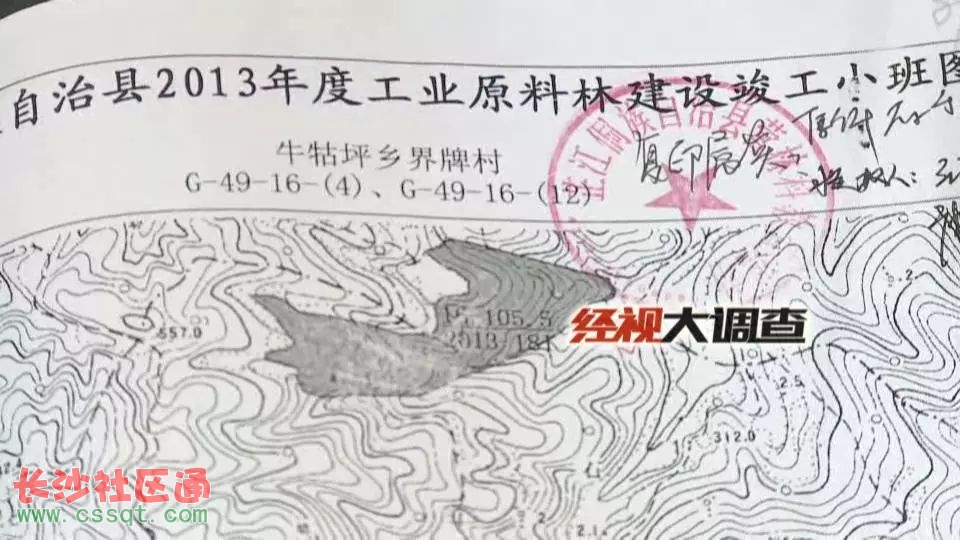 自治县2013年度工业原料林建设竣工小班图
牛牯坪乡界牌村
G-49-16-(4)、G-49-16-(12)
芷江侗族自治县
复印属实
105.5
2013 181
经视大调查
557.0
2.5
312.0
2.1
长沙社区通
www.cssqt.com